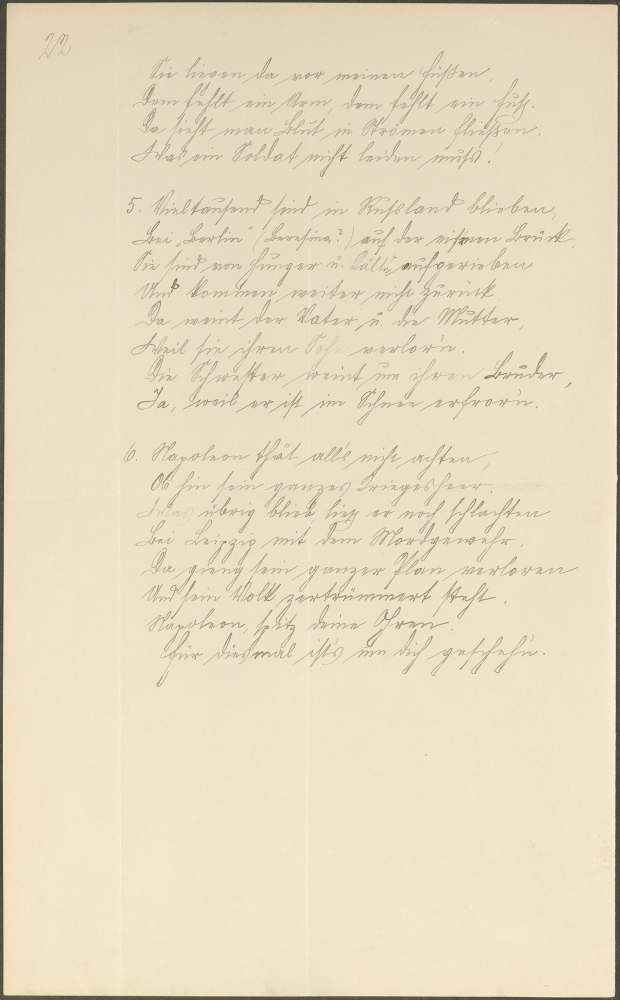 22
Sie liegen da vor meinen Füßen,
Dem fehlt ein Arm, dem fehlt ein Fuß.
Da sieht man Blut in Strömen fließen.
Was ein Soldat nicht leiden muß.
5. Vieltausend sind in Russland blieben,
Bei „Berlin“ (Beresina?) auf der eisnen Bruck.
Sie sind von Hunger u. Kält' aufgerieben
Und kommen weiter nicht zurück.
Da weint der Vater u. die Mutter,
Weil sie ihren Sohn verlor'n.
Die Schwester weint um ihren Bruder,
Ja, weil er ist im Schnee erfror'n.
6. Napoleon thät alls nicht achten,
Ob hin sein ganzes Kriegesheer.
Was übrig blieb, ließ er noch schlachten
Bei Leipzig mit dem Mordgewehr.
Da gieng sein ganzer Plan verloren
Und sein Volk zertrümmert steht.
Napoleon, spitz deine Ohren.
Für diesmal ist's um dich gescheh'n.